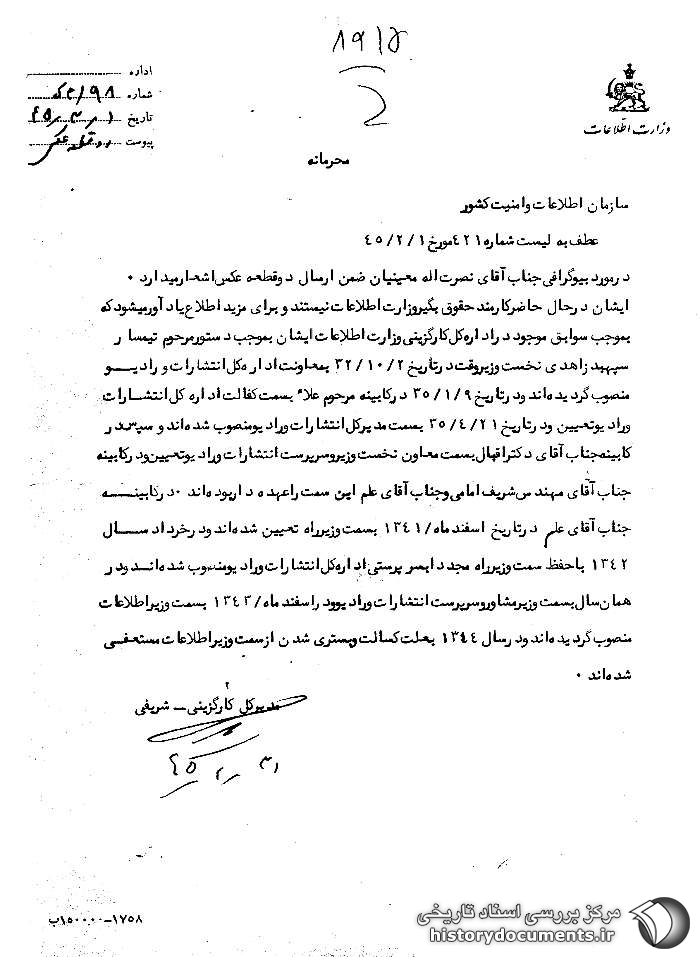 ۸۹۱۵
۲
اداره
شماره ۲/۹۸ ک
تاریخ ۴۵/۳/۱
پیوست دو قطعه عکس
وزارت اطلاعات
محرمانه
سازمان اطلاعات و امنیت کشور
عطف به لیست شماره ۴۲۱ مورخ ۴۵/۲/۱
در مورد بیوگرافی جناب آقای نصرت اله معینیان ضمن ارسال دو قطعه عکس اشعار میدارد ۰
ایشان در حال حاضر کارمند حقوق بگیر وزارت اطلاعات نیستند و برای مزید اطلاع یادآور میشود که
بموجب سوابق موجود در اداره کل کارگزینی وزارت اطلاعات ایشان بموجب دستور مرحوم تیمسار
سپهبد زاهدی نخست وزیر وقت در تاریخ ۳۲/۱۰/۲ بمعاونت اداره کل انتشارات و رادیو
منصوب گردیده اند و در تاریخ ۳۵/۱/۹ در کابینه مرحوم علاء بسمت کفالت اداره کل انتشارات
و رادیو تعیین و در تاریخ ۳۵/۴/۲۱ بسمت مدیر کل انتشارات و رادیو منصوب شده اند و سپس در
کابینه جناب آقای دکتر اقبال بسمت معاون نخست وزیر و سرپرست انتشارات و رادیو تعیین و در کابینه
جناب آقای مهندس شریف امامی و جناب آقای علم این سمت را عهده دار بوده اند ۰ در کابینه
جناب آقای علم در تاریخ اسفند ماه/۱۳۴۱ بسمت وزیر راه تعیین شده اند و در خرداد سال
۱۳۴۲ با حفظ سمت وزیر راه مجددا بسرپرستی اداره کل انتشارات و رادیو منصوب شده اند و در
همان سال بسمت وزیر مشاور و سرپرست انتشارات و رادیو و در اسفند ماه/۱۳۴۳ بسمت وزیر اطلاعات
منصوب گردیده اند و در سال ۱۳۴۴ بعلت کسالت و بستری شدن از سمت وزیر اطلاعات مستعفی
شده اند ۰
مدیر کل کارگزینی - شریفی
۴۵/۲/۳۱
۱۷۵۸-۱۵۰۰۰۰ب
مرکز بررسی اسناد تاریخی
historydocuments.ir